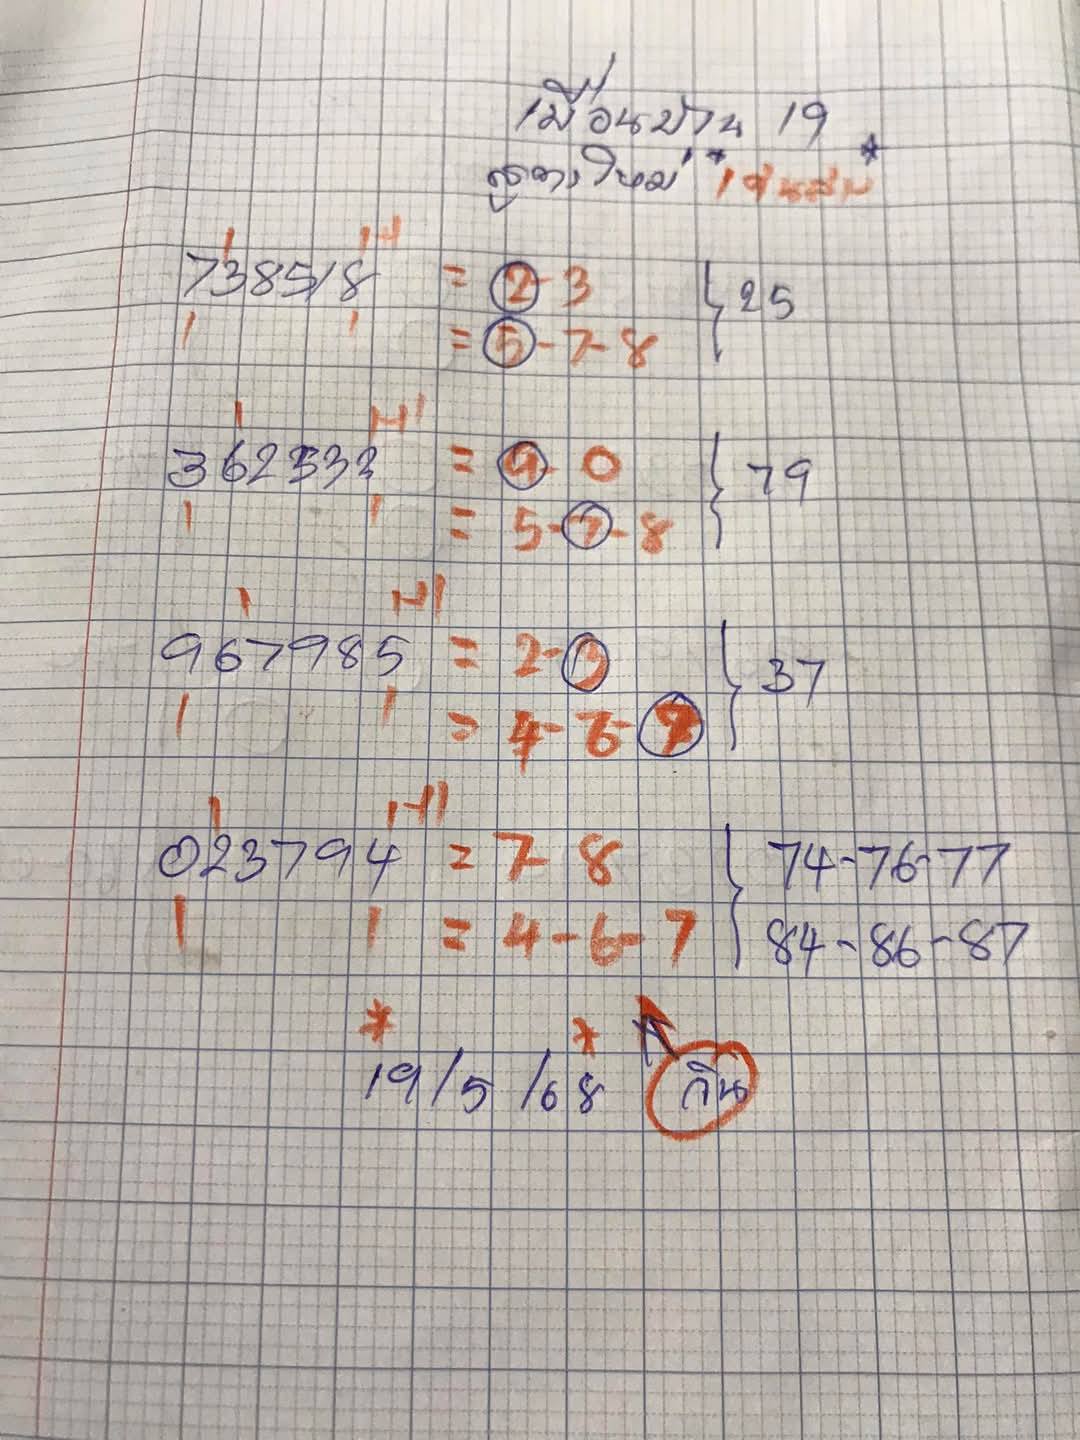 เพื่อนบ้าน 19
สูตรใหม่ * เซ่นสม *
738518 = 2-3 } 25
= 5-7-8
362333 = 9-0 } 79
= 5-7-8
967985 = 2-3 } 37
= 4-6-7
023794 = 7-8 } 74-76-77
= 4-6-7 84-86-87
* *
19/5/68 กิน